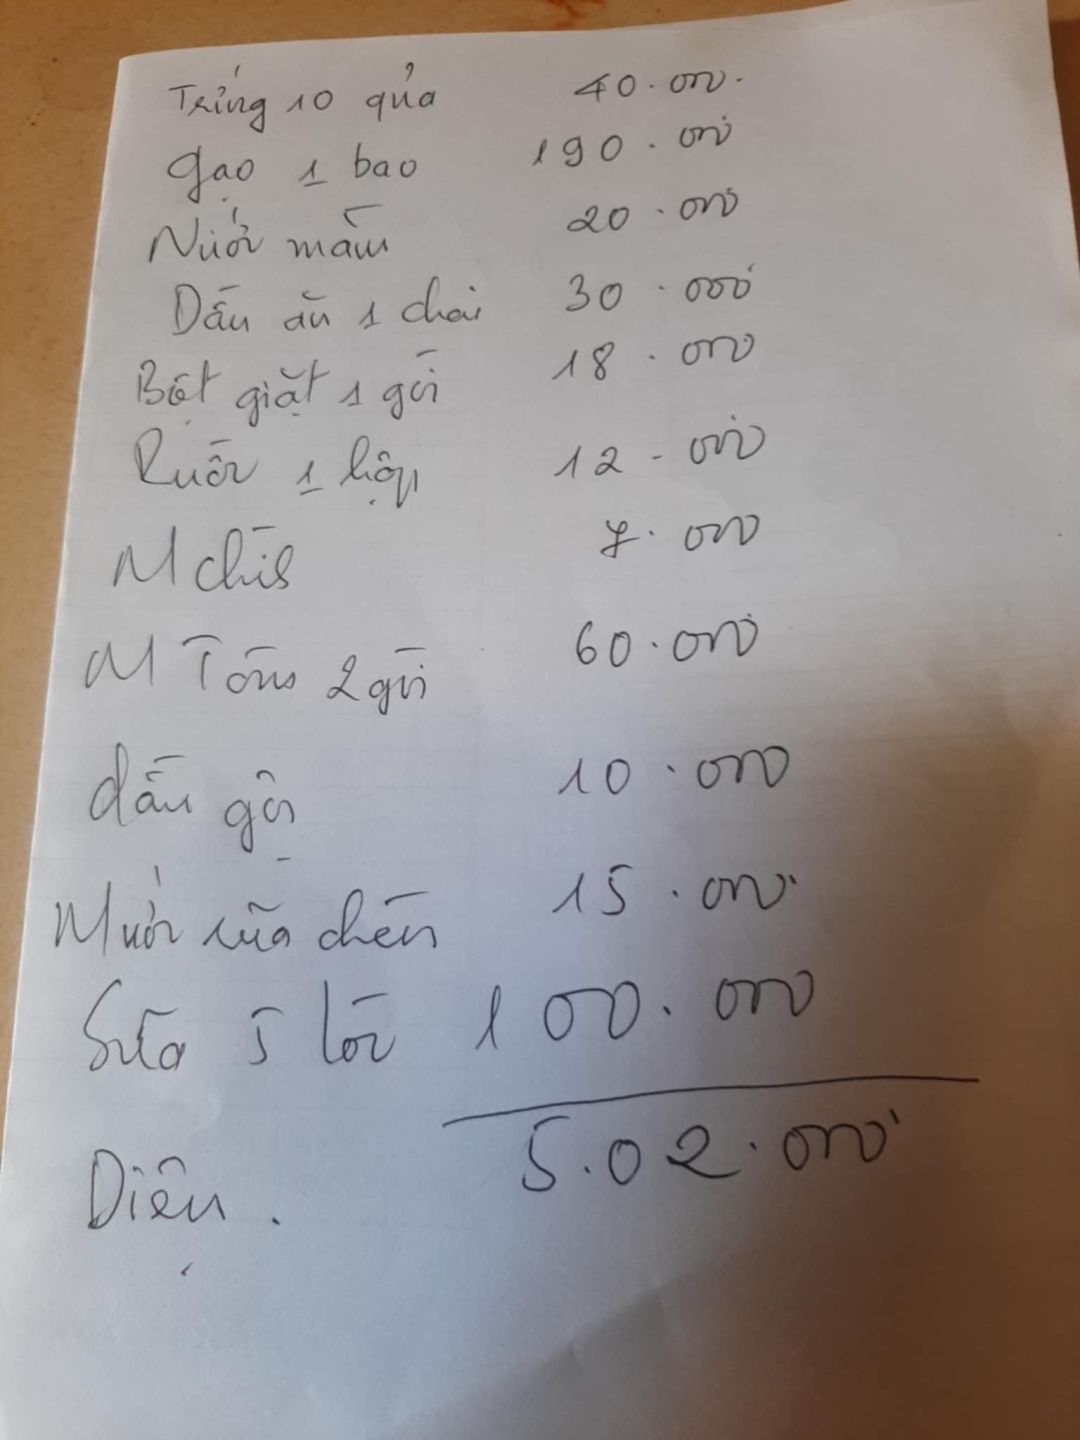 Trứng 10 quả 40.000
Gạo 1 bao 190.000
Nước mắm 20.000
Dầu ăn 1 chai 30.000
Bột giặt 1 gói 18.000
Ruốc 1 hộp 12.000
M chís 7.000
M Tôm 2 gói 60.000
dầu gội 10.000
Nước rửa chén 15.000
Sữa 5 lốc 100.000
5.02.000
Diệu.